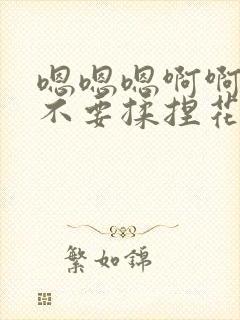 嗯嗯嗯啊啊
不要揉捏花
繁如锦